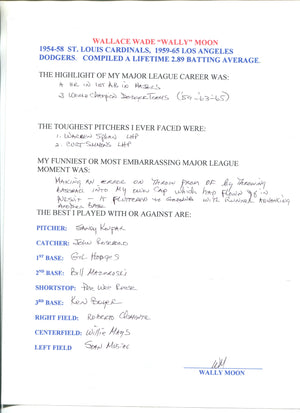 WALLACE WADE "WALLY" MOON
1954-58 ST. LOUIS CARDINALS, 1959-65 LOS ANGELES
DODGERS. COMPILED A LIFETIME 2.89 BATTING AVERAGE.
THE HIGHLIGHT OF MY MAJOR LEAGUE CAREER WAS:
HR IN 1ST AB IN MAJORS
3 WORLD CHAMPION DODGER TEAMS (59-'63-65)
THE TOUGHEST PITCHERS I EVER FACED WERE:
1. WARREN SPAHN LHP
2. CURT SIMMONS LHP
MY FUNNIEST OR MOST EMBARRASSING MAJOR LEAGUE
MOMENT WAS:
MAKING AN ERROR ON THROW FROM OF BY THROWING
BASEBALL INTO MY OWN CAP WHICH HAD FLOWN OFF IN
- IT FLUTTERED TO GROUND WITH RUNNER ADVANCING
ANOTHER BASE
THE BEST I PLAYED WITH OR AGAINST ARE:
PITCHER: SANDY KOUFAX
CATCHER: JOHN ROSEBORO
1ST BASE: GIL HODGES
2ND BASE: BILL MAZEROSKI
SHORTSTOP: PEE WEE REESE
3RD BASE: KEN BOYER
RIGHT FIELD: ROBERTO CLEMENTE
CENTERFIELD: WILLIE MAYS
LEFT FIELD STAN MUSIAL
WM
WALLY MOON